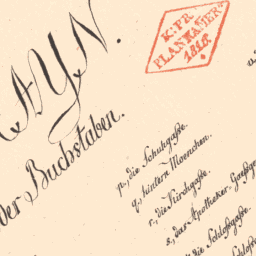 AYN.
der Buchstaben.
K: PR
PLANKAMER
1816.
p, die Schulgaße.
q, hintern Moenchen.
r, die Kirchgaße.
s, das Apotheker Gaeßgen
die Schloßgaße.